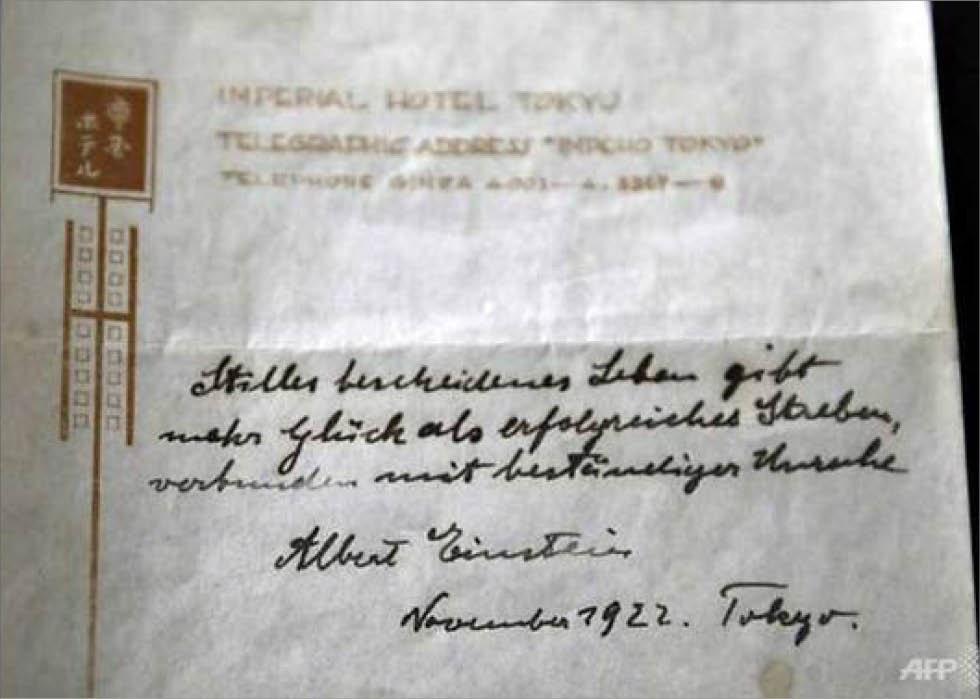 帝国
ホテル
IMPERIAL HOTEL TOKYO
TELEGRAPHIC ADDRESS "IMPEHO TOKYO"
TELEPHONE GINZA
Stilles bescheidenes Leben gibt
mehr Glück als erfolgreiches Streben,
verbunden mit beständiger Unruhe
Albert Einstein
November 1922. Tokyo.
AFP